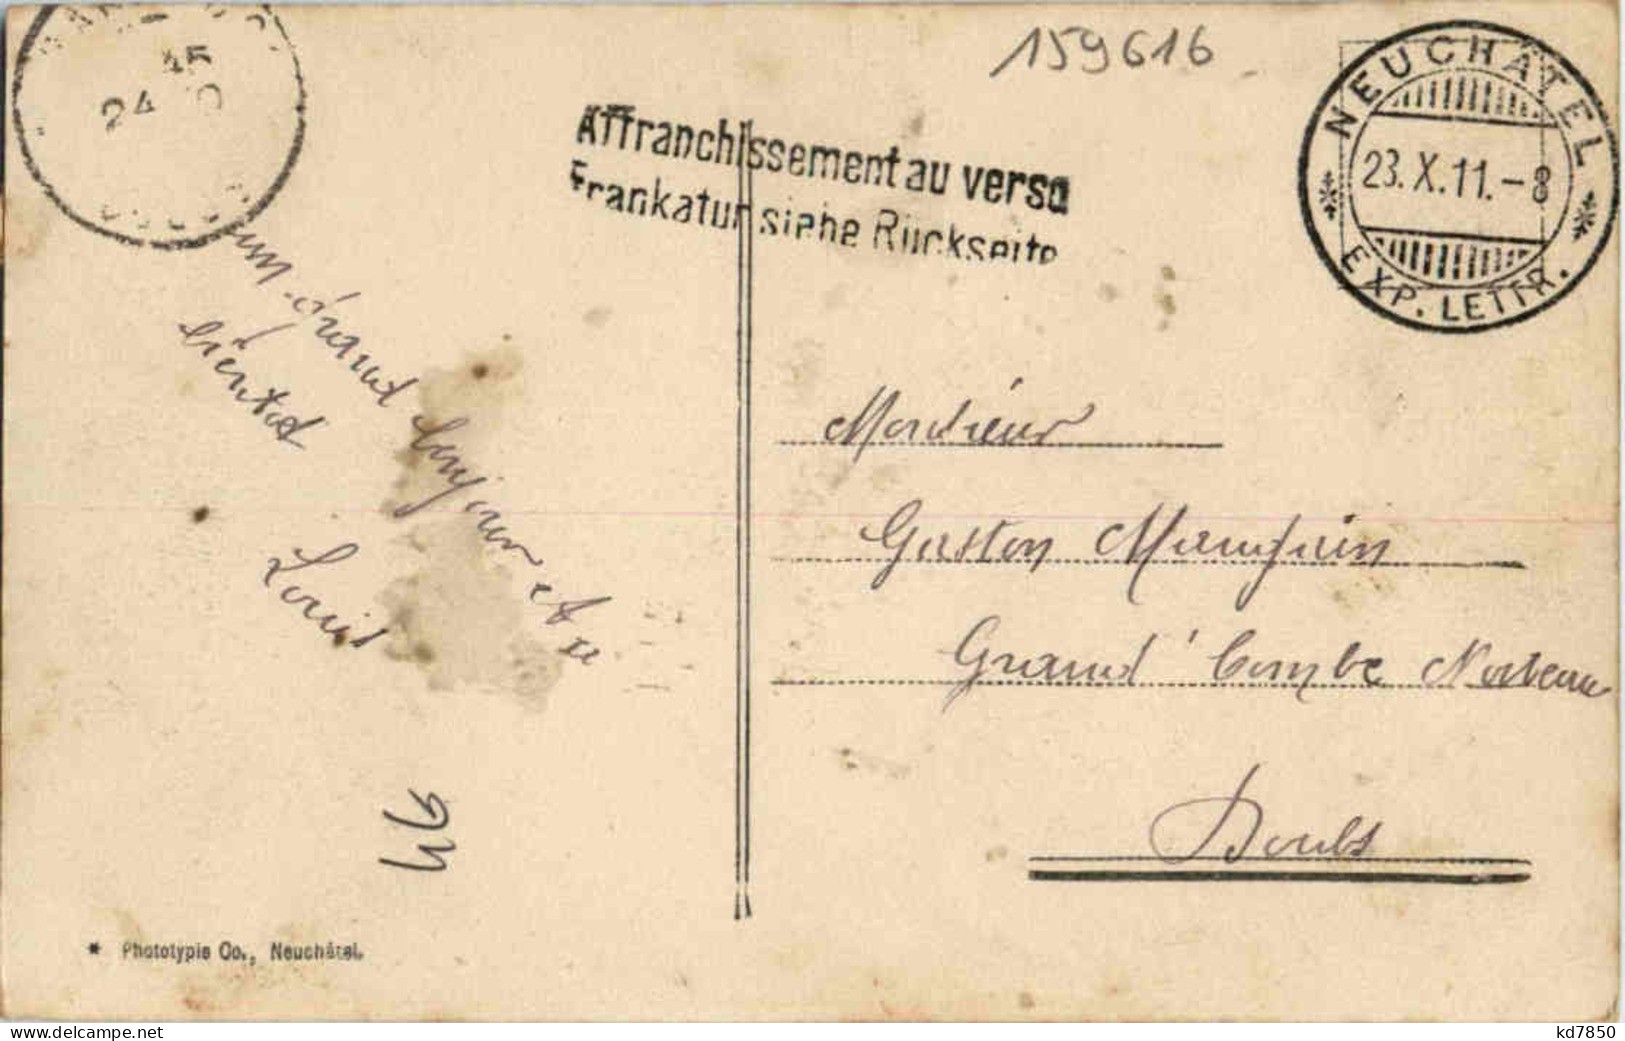 159616
NEUCHATEL
23.X.11.-8
EXP. LETTR.
24
Affranchissement au verso
Frankatur siehe Rückseite
un grand bonjour et a
bientot
Louis
Monsieur
Gaston
Grand' Combe
Doubs
* Phototypie Co., Neuchâtel.
kd7850